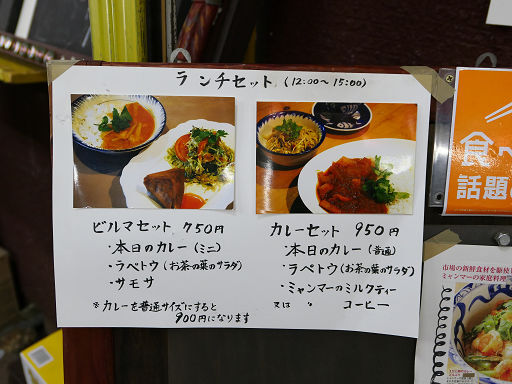 ランチセット (12:00〜15:00)
ビルマセット 750円
・本日のカレー(ミニ)
・ラペトウ(お茶の葉のサラダ)
・サモサ
※カレーを普通サイズにすると
900円になります
カレーセット 950円
・本日のカレー(普通)
・ラペトウ(お茶の葉のサラダ)
・ミャンマーのミルクティー
又は 〃 コーヒー
食べ
話題の
市場の新鮮食材を駆使
ミャンマーの家庭料理